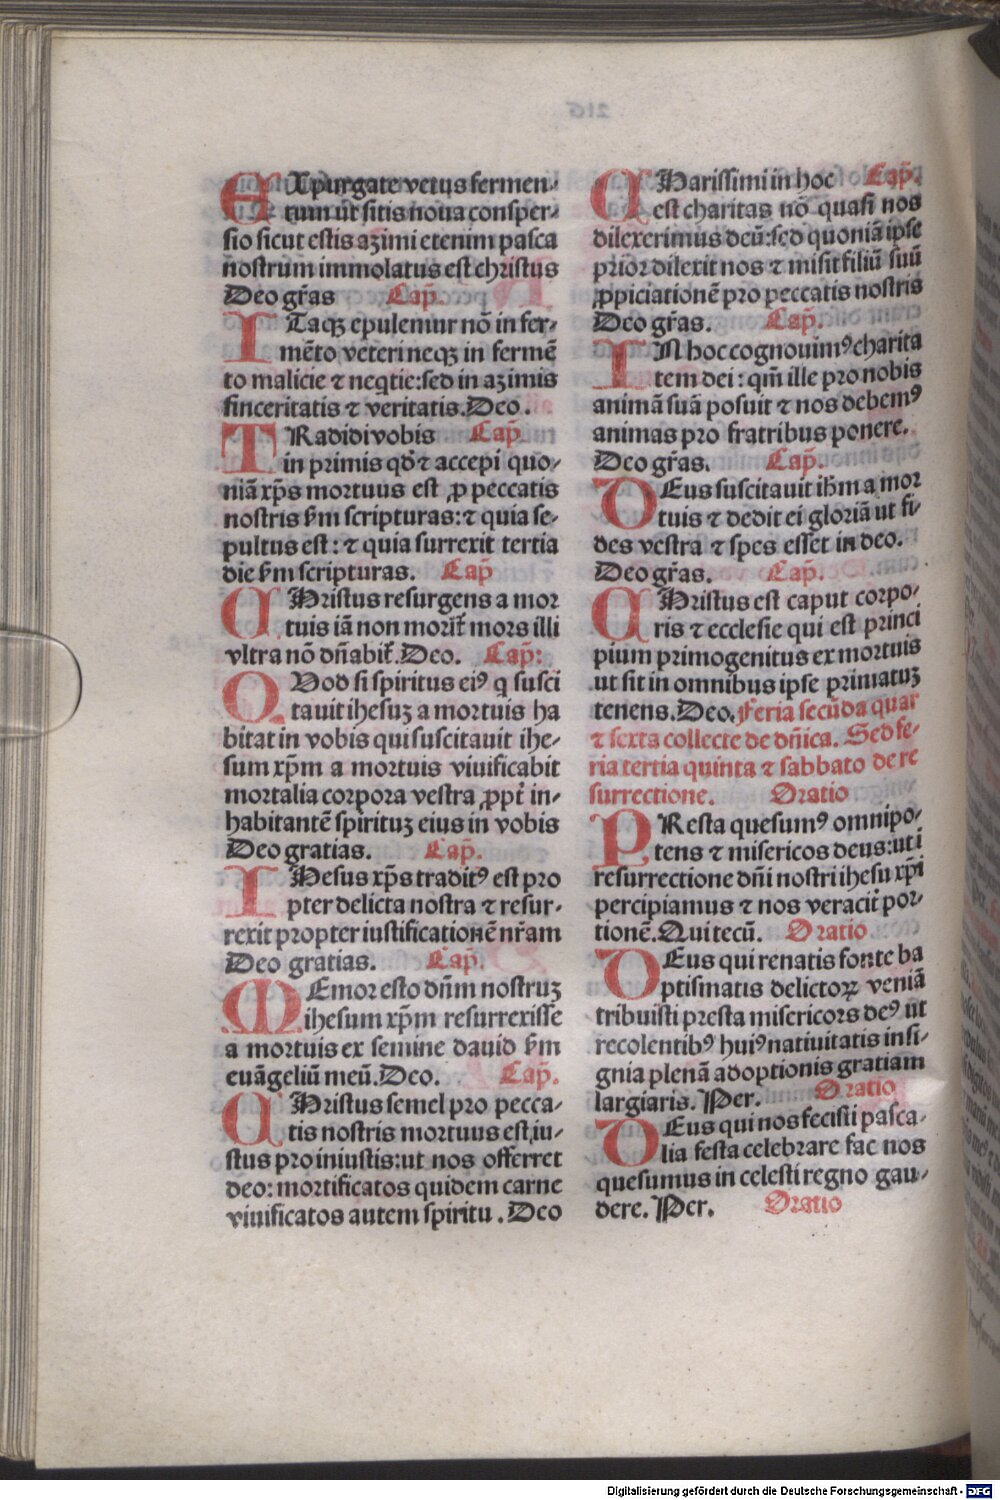 EXpurgate vetus fermen-
tum ut sitis noua consper-
sio sicut estis azimi etenim pasca
nostrum immolatus est christus
Deo gr̃as Cap̃.
ITaqꝫ epulemur nõ in fer-
mẽto veteri neqꝫ in fermẽ
to malicie ⁊ neq̃tie:sed in azimis
sinceritatis ⁊ veritatis.Deo.
TRadidi vobis Cap̃.
in primis qđ ⁊ accepi quo-
niã xp̃s mortuus est ꝓ peccatis
nostris ẜm scripturas:⁊ quia se-
pultus est:⁊ quia surrexit tertia
die ẜm scripturas. Cap̃
CHristus resurgens a mor
tuis iã non morit̃ mors illi
vltra nõ dñabit̃.Deo. Cap̃:
QVod si spiritus eiꝰ q susci
tauit ihesuꝫ a mortuis ha
bitat in vobis qui suscitauit ihe-
sum xp̃m a mortuis viuificabit
mortalia corpora vestra ꝓpt̃ in-
habitantẽ spirituꝫ eius in vobis
Deo gratias. Cap̃.
IHesus xp̃s traditꝰ est pro
pter delicta nostra ⁊ resur-
rexit propter iustificationẽ nr̃am
Deo gratias. Cap̃.
MEmor esto dñm nostruꝫ
ihesum xp̃m resurrexisse
a mortuis ex semine dauid ẜm
euãgeliũ meũ.Deo. Cap̃.
CHristus semel pro pecca-
tis nostris mortuus est,iu-
stus pro iniustis:ut nos offerret
deo:mortificatos quidem carne
viuificatos autem spiritu.Deo
CHarissimi in hoc Cap̃.
est charitas nõ quasi nos
dilexerimus deũ:sed quoniã ipse
prior dilexit nos ⁊ misit filiũ suũ
ꝓpiciationẽ pro peccatis nostris
Deo gr̃as. Cap̃.
IN hoc cognouimꝰ charita
tem dei:qm̃ ille pro nobis
animã suã posuit ⁊ nos debemꝰ
animas pro fratribus ponere.
Deo gr̃as. Cap̃.
DEus suscitauit ih̃m a mor
tuis ⁊ dedit ei gloriã ut fi-
des vestra ⁊ spes esset in deo.
Deo gr̃as. Cap̃.
CHristus est caput corpo-
ris ⁊ ecclesie qui est princi
pium primogenitus ex mortuis
ut sit in omnibus ipse primatuꝫ
tenens.Deo.Feria secũda quar
⁊ sexta collecte de dñica. Sed fe-
ria tertia quinta ⁊ sabbato de re
surrectione. Oratio
PResta quesumꝰ omnipo-
tens ⁊ misericors deus:ut i
resurrectione dñi nostri ihesu xp̃i
percipiamus ⁊ nos veracit̃ por-
tionẽ.Qui tecũ. Oratio
DEus qui renatis fonte ba
ptismatis delictoꝝ veniã
tribuisti presta misericors deꝰ ut
recolentibꝰ huiꝰ natiuitatis insi-
gnia plenã adoptionis gratiam
largiaris. Per. Oratio
DEus qui nos fecisti pasca-
lia festa celebrare fac nos
quesumus in celesti regno gau-
dere. Per. Oratio
Digitalisierung gefördert durch die Deutsche Forschungsgemeinschaft - DFG